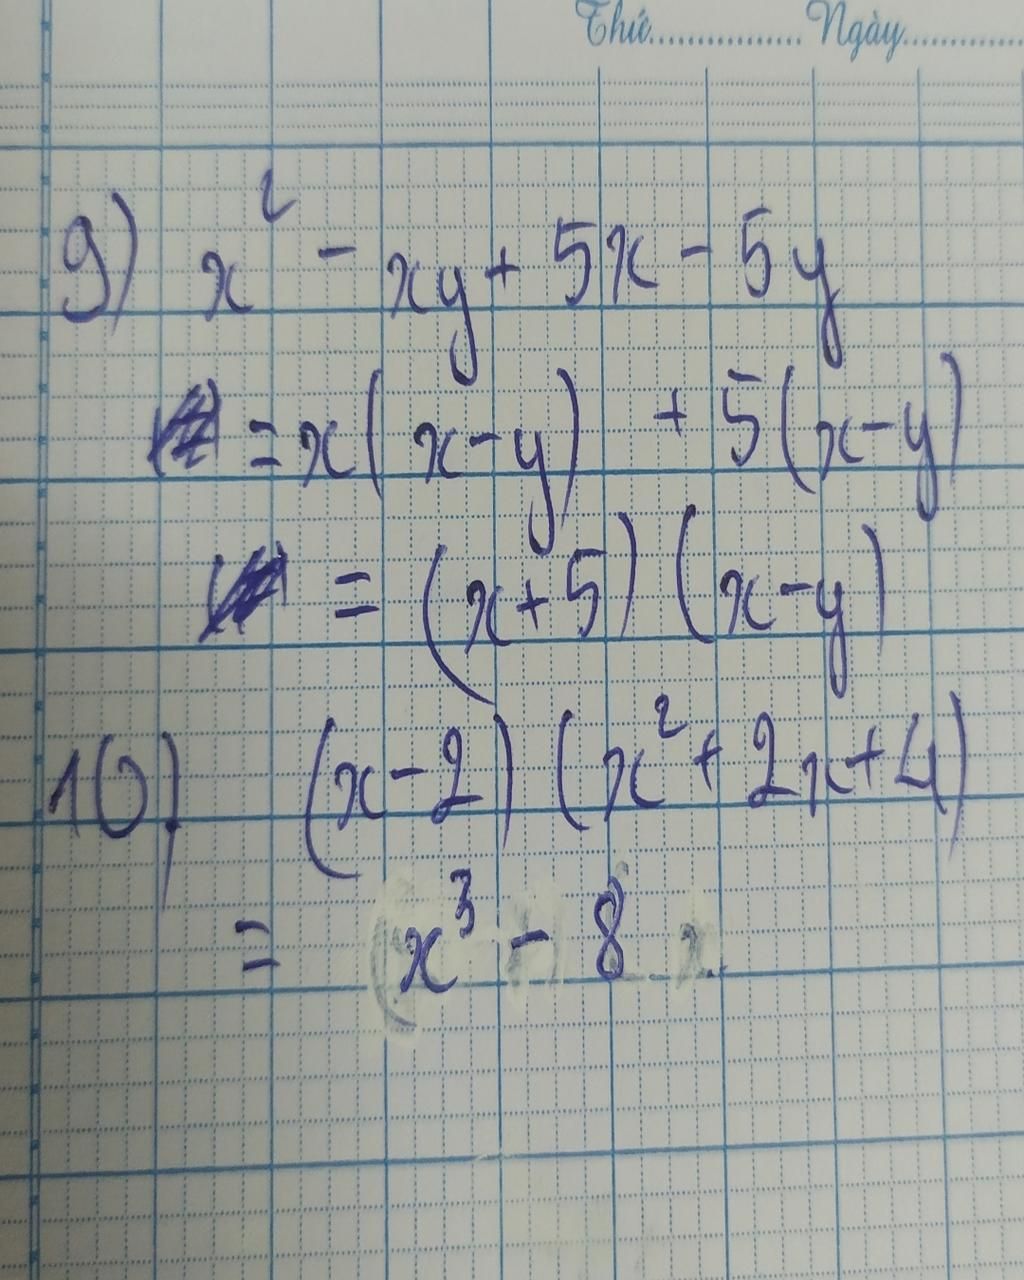 Thứ............... Ngày...............
9) x² - xy + 5x - 5y
= x(x-y) + 5(x-y)
= (x+5) (x-y)
10) (x-2) (x² + 2x + 4)
= x³ - 8